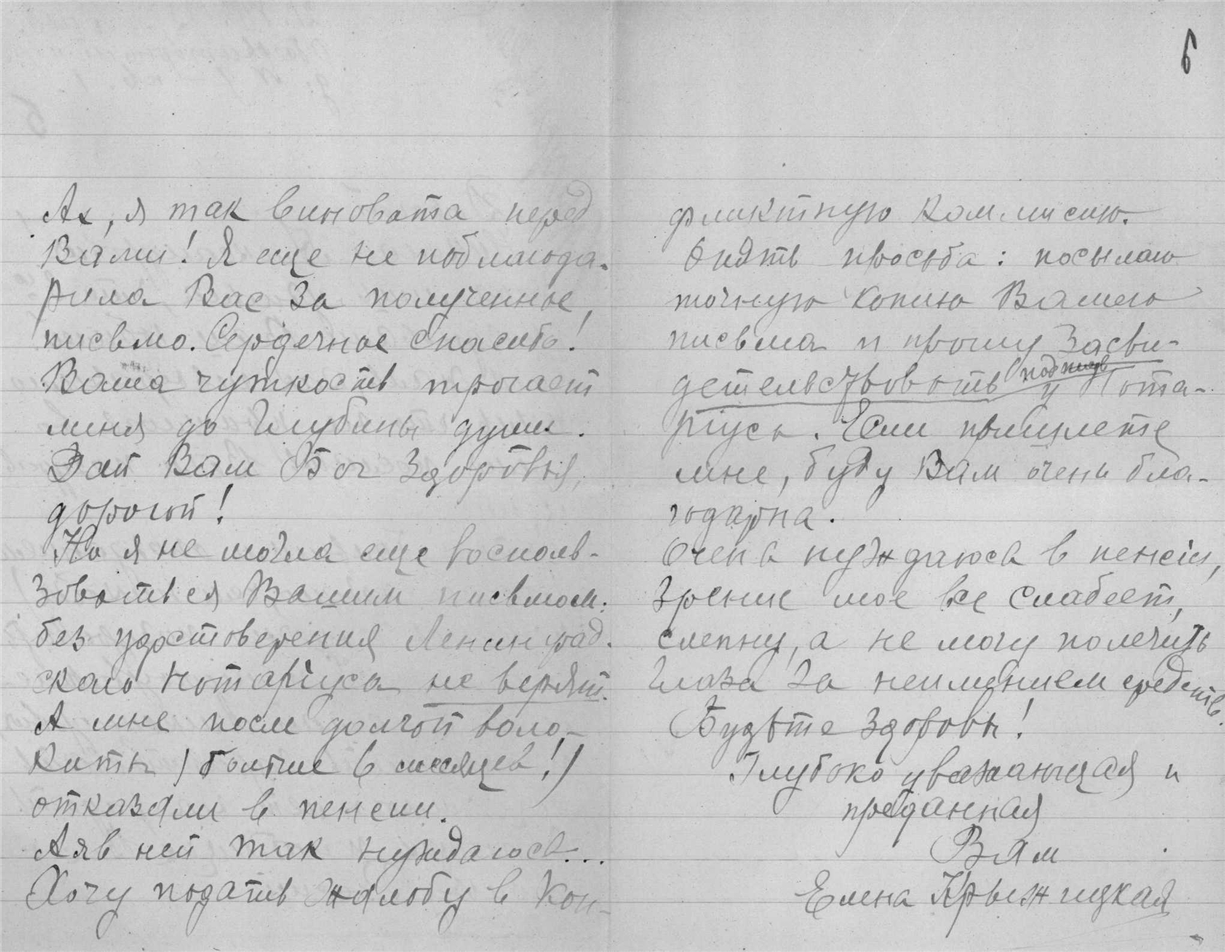 6
Ах, я так виновата перед
Вами! Я еще не поблагода-
рила Вас за полученное
письмо. Сердечное спасибо!
Ваша чуткость трогает
меня до глубины души.
Дай Вам Бог здоровья,
дорогой!
Но я не могла еще восполь-
зоваться Вашим письмом:
без удостоверения Ленинград-
ского Нотариуса не верят.
А мне после долгой воло-
киты (больше 6 месяцев!)
отказали в пенсии.
А я в ней так нуждаюсь...
Хочу подать жалобу в Кон-
фликтную Коммисию.
Опять просьба: посылаю
точную копию Вашего
письма и прошу Засви-
детельствовать подпись у Нота-
риуса. Если пришлете
мне, буду Вам очень бла-
годарна.
Очень нуждаюсь в пенсии,
зрение мое все слабеет,
слепну, а не могу полечить
глаза за неимением средств
Будьте здоровы!
Глубоко уважающая и
преданная
Вам
Елена Крыжицкая